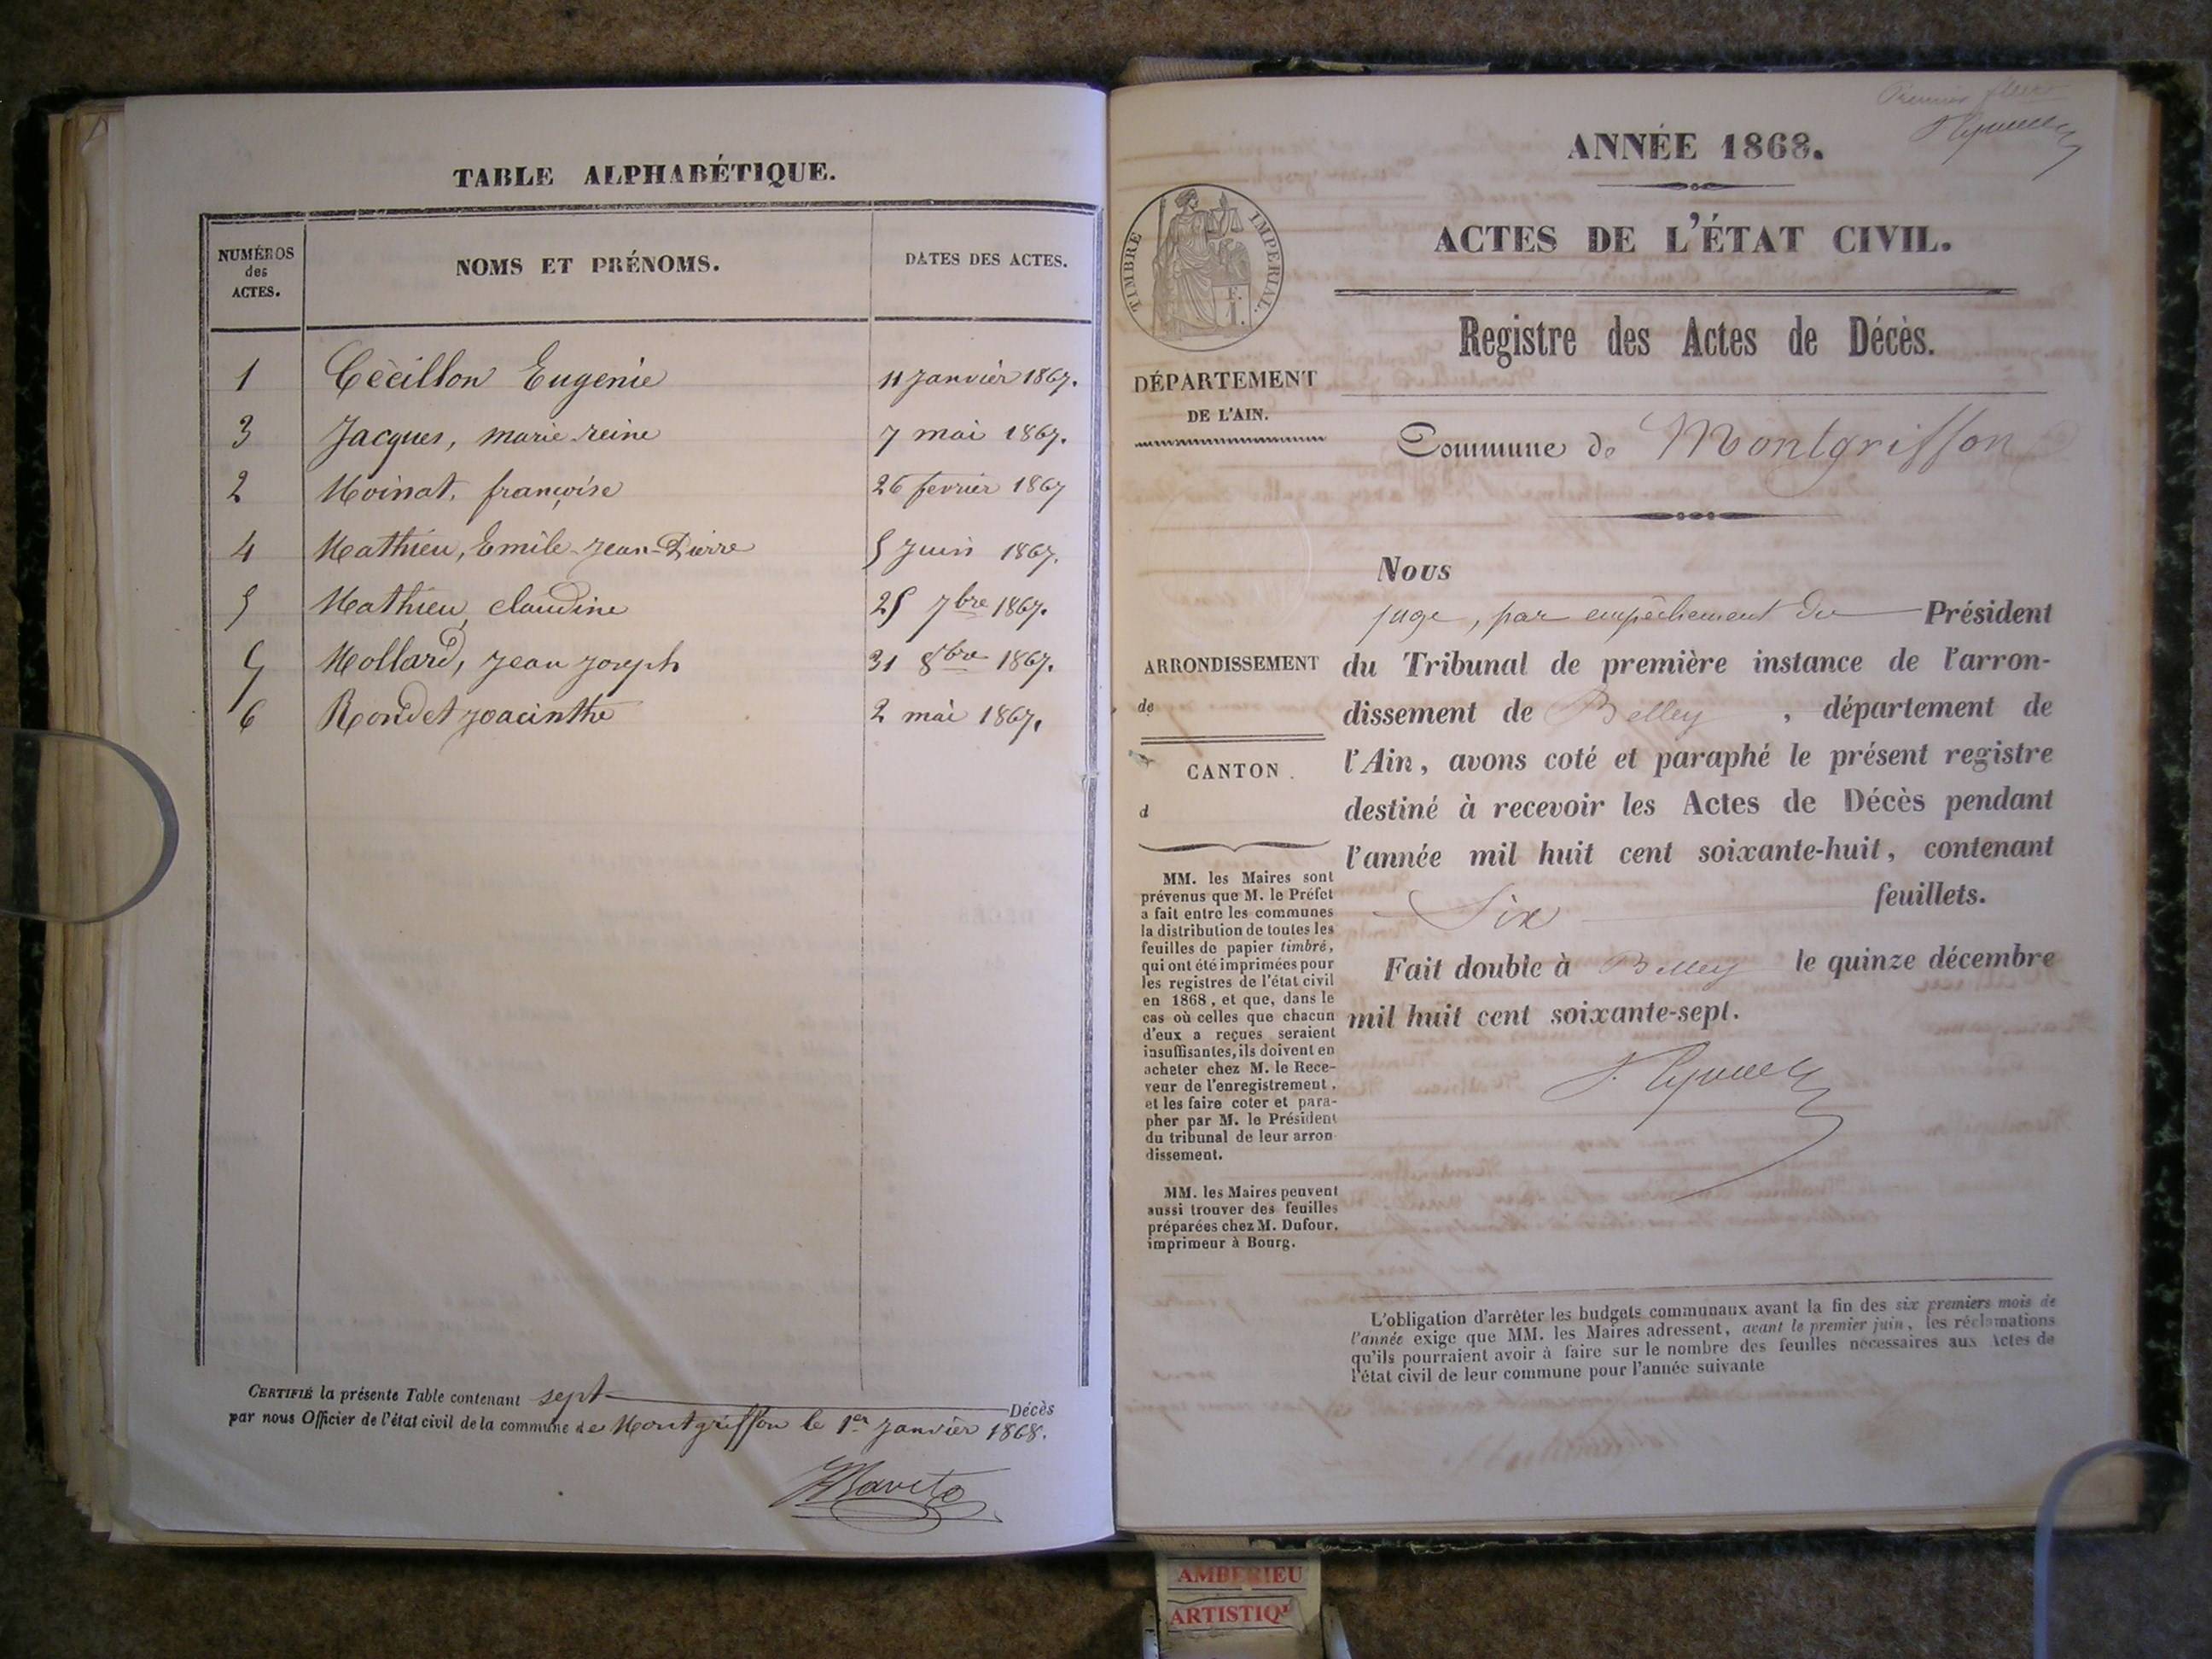 TABLE ALPHABÉTIQUE.
NUMÉROS des ACTES. NOMS ET PRÉNOMS. DATES DES ACTES.
1 Cècillon Eugenie 11 Janvier 1867.
3 Jacques, marie-reine 7 mai 1867.
2 Moinat, françoise 26 fevrier 1867
4 Mathieu, Emile-Jean-Pierre 5 Juin 1867.
5 Mathieu, claudine 25 7bre 1867.
Mollard, Jean Joseph 31 8bre 1867.
6 Rondet Joacinthe 2 mai 1867.
CERTIFIÉ la présente Table contenant sept Décès
par nous Officier de l'état civil de la commune de Montgriffon le 1er Janvier 1868.
Premier
ANNÉE 1868.
ACTES DE L'ÉTAT CIVIL.
TIMBRE IMPERIAL.
1 F.
Registre des Actes de Décès.
DÉPARTEMENT
DE L'AIN.
Commune de Montgriffon
Nous
juge, par empêchement du Président
du Tribunal de première instance de l'arron-
dissement de Belley, département de
l'Ain, avons coté et paraphé le présent registre
destiné à recevoir les Actes de Décès pendant
l'année mil huit cent soixante-huit, contenant
Six feuillets.
Fait double à Belley le quinze décembre
mil huit cent soixante-sept.
ARRONDISSEMENT
de
CANTON
d
MM. les Maires sont
prévenus que M. le Préfet
a fait entre les communes
la distribution de toutes les
feuilles de papier timbré,
qui ont été imprimées pour
les registres de l'état civil
en 1868, et que, dans le
cas où celles que chacun
d'eux a reçues seraient
insuffisantes, ils doivent en
acheter chez M. le Rece-
veur de l'enregistrement,
et les faire coter et para-
pher par M. le Président
du tribunal de leur arron-
dissement.
MM. les Maires peuvent
aussi trouver des feuilles
préparées chez M. Dufour,
imprimeur à Bourg.
L'obligation d'arrêter les budgets communaux avant la fin des six premiers mois de
l'année exige que MM. les Maires adressent, avant le premier juin, les réclamations
qu'ils pourraient avoir à faire sur le nombre des feuilles nécessaires aux Actes de
l'état civil de leur commune pour l'année suivante
AMBERIEU
ARTISTIQ